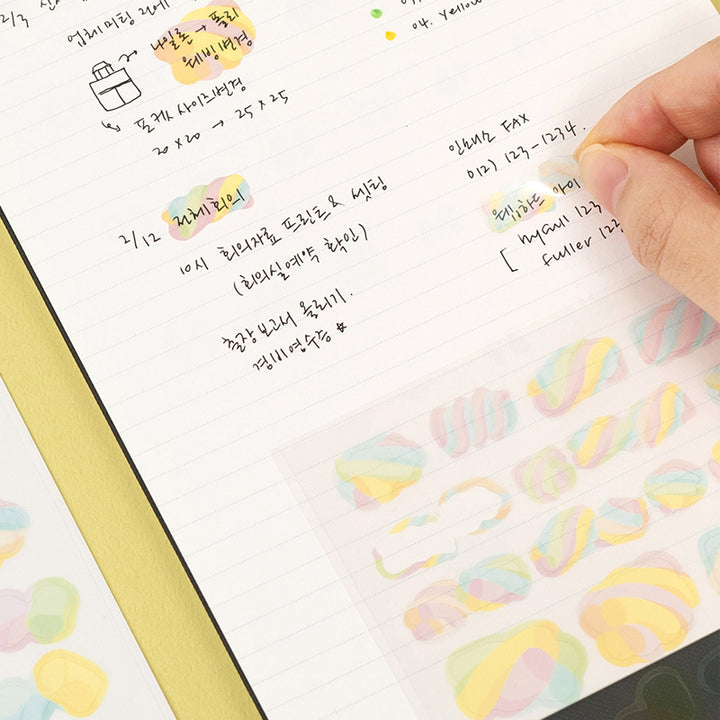 2/3
업체미팅 2건
나일론 → 폴리
웨빙변경
포켓 사이즈변경
20 x 20 → 25 x 25
04. Yellow
2/12 전체회의
10시 회의자료 프린트 & 셋팅
(회의실예약 확인)
출장보고서 올리기.
경비영수증 ★
인쇄소 FAX
012) 123-1234.
웹하드 아이
[ hyaull 123
fuller 123